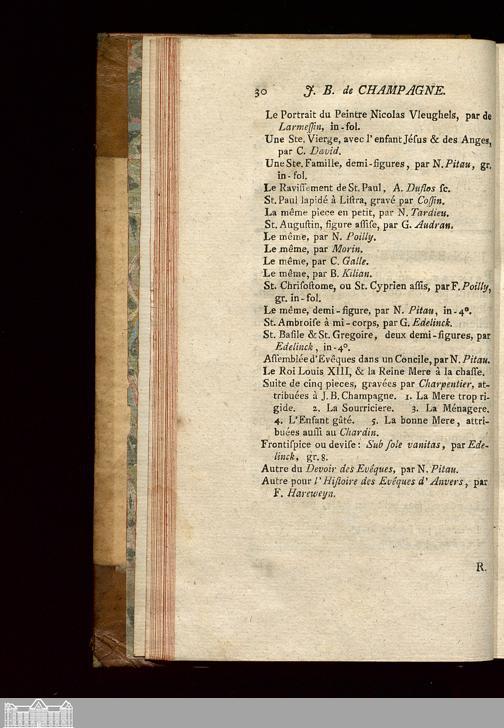 30 J. B. de CHAMPAGNE.
Le Portrait du Peintre Nicolas Vleughels, par de
Larmeſſin, in-fol.
Une Ste. Vierge, avec l'enfant Jéſus & des Anges,
par C. David.
Une Ste. Famille, demi-figures, par N. Pitau, gr.
in-fol.
Le Raviſſement de St. Paul, A. Duflos ſc.
St. Paul lapidé à Liſtra, gravé par Coſſin.
La même piece en petit, par N. Tardieu.
St. Auguſtin, figure aſſiſe, par G. Audran.
Le même, par N. Poilly.
Le même, par Morin.
Le même, par C. Galle.
Le même, par B. Kilian.
St. Chriſoſtome, ou St. Cyprien aſſis, par F. Poilly,
gr. in-fol.
Le même, demi-figure, par N. Pitau, in-4°.
St. Ambroiſe à mi-corps, par G. Edelinck.
St. Baſile & St. Gregoire, deux demi-figures, par
Edelinck, in-4°.
Aſſemblée d'Evêques dans un Concile, par N. Pitau.
Le Roi Louis XIII, & la Reine Mere à la chaſſe.
Suite de cinq pieces, gravées par Charpentier, at-
tribuées à J. B. Champagne. 1. La Mere trop ri-
gide. 2. La Sourriciere. 3. La Ménagere.
4. L'Enfant gâté. 5. La bonne Mere, attri-
buées auſſi au Chardin.
Frontiſpice ou deviſe: Sub ſole vanitas, par Ede-
linck, gr. 8.
Autre du Devoir des Evêques, par N. Pitau.
Autre pour l'Hiſtoire des Evêques d'Anvers, par
F. Hareweyn.
R.